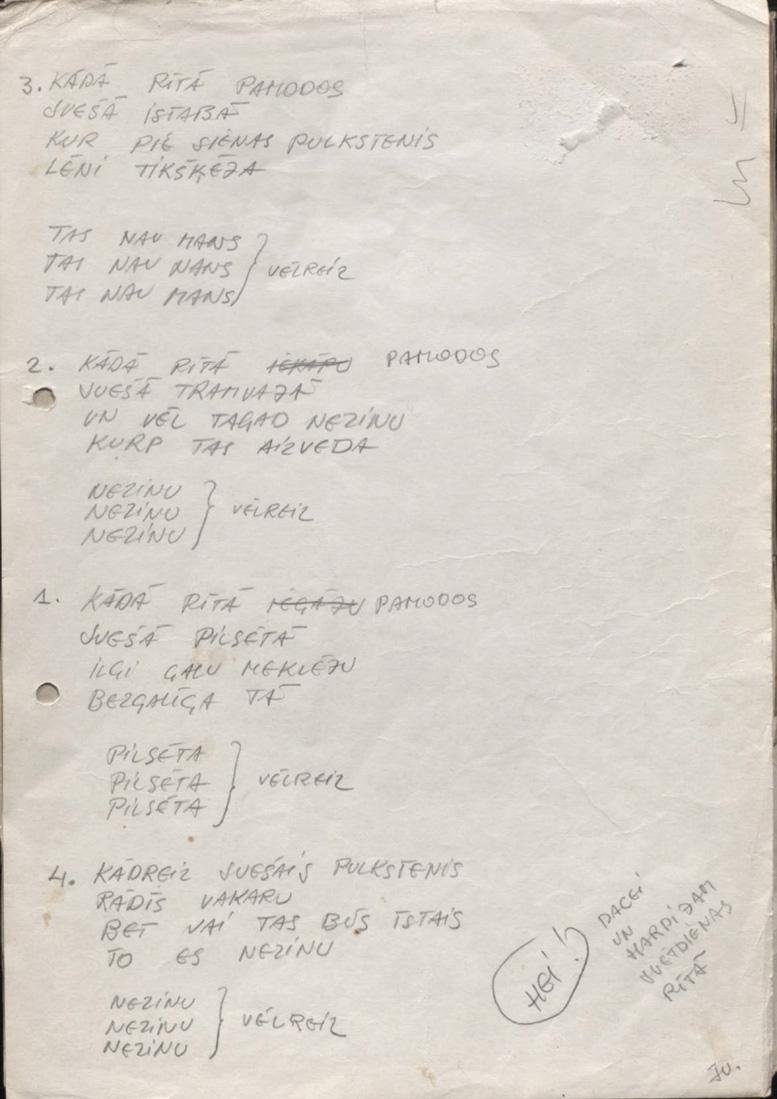 3. KĀDĀ RĪTĀ PAMODOS
SVEŠĀ ISTABĀ
KUR PIE SIENAS PULKSTENIS
LĒNI TIKŠĶĒJA
TAS NAV MANS
TAS NAV NANS
TAS NAV MANS
VĒLREIZ
2. KĀDĀ RĪTĀ IEKĀPU PAMODOS
SVEŠĀ TRAMVAJĀ
UN VĒL TAGAD NEZINU
KURP TAS AIZVEDA
NEZINU
NEZINU
NEZINU
VĒLREIZ
1. KĀDĀ RĪTĀ IEGĀJU PAMODOS
SVEŠĀ PILSĒTĀ
ILGI GALU MEKLĒJU
BEZGALĪGA TĀ
PILSĒTA
PILSĒTA
PILSĒTA
VĒLREIZ
4. KĀDREIZ SVEŠAIS PULKSTENIS
RĀDĪS VAKARU
BET VAI TAS BŪS ĪSTAIS
TO ES NEZINU
NEZINU
NEZINU
NEZINU
VĒLREIZ
HEI!
DACEI
UN
HARDIJAM
SVĒTDIENAS
RĪTĀ